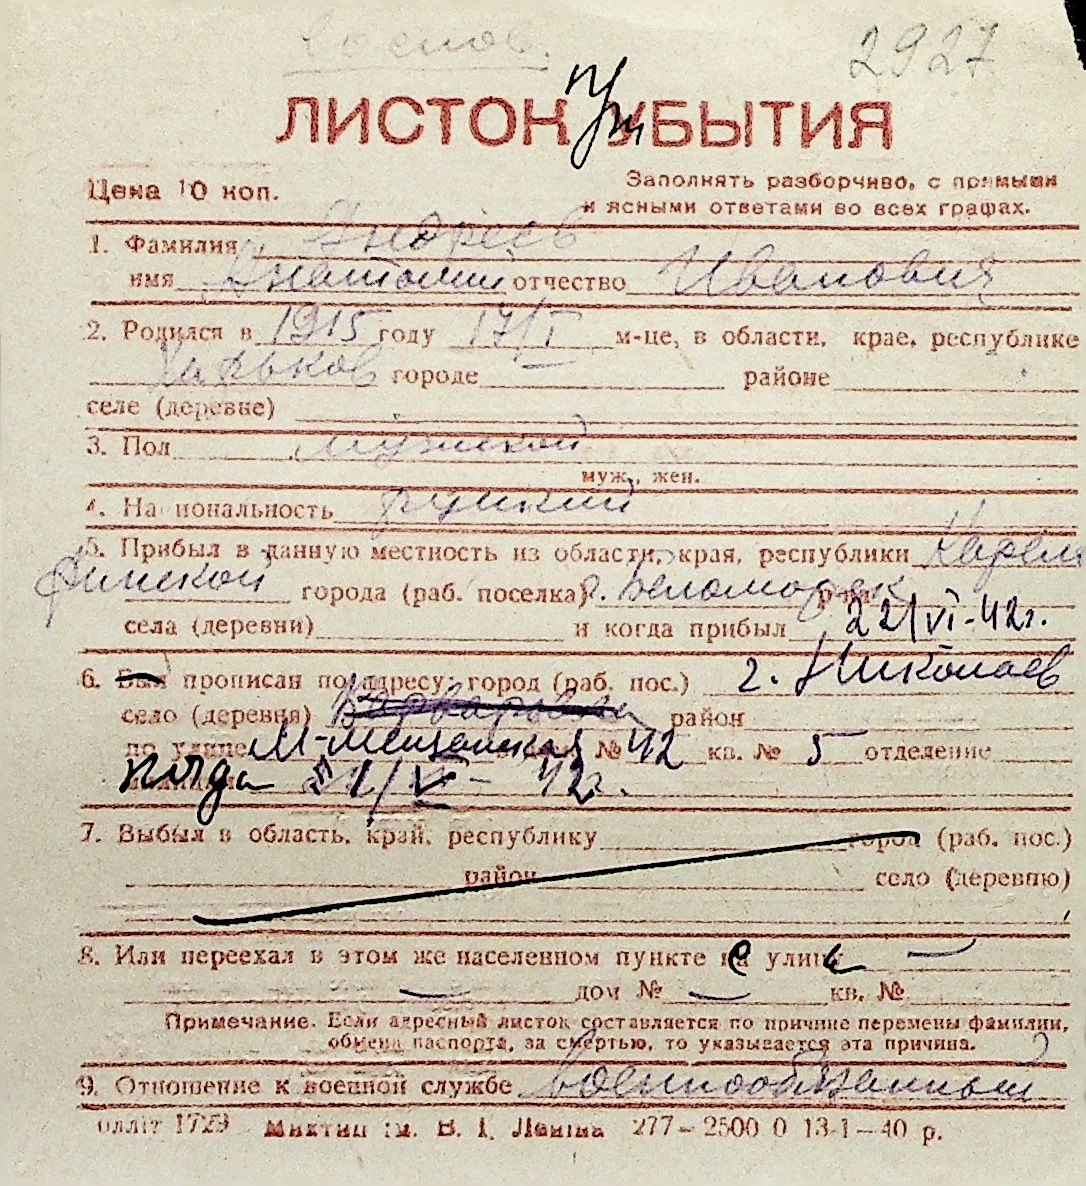 2927
ЛИСТОК УБЫТИЯ
При
Цена 10 коп.
Заполнять разборчиво, с прямыми
и ясными ответами во всех графах.
1. Фамилия Андреев
имя Анатолий отчество Иванович
2. Родился в 1915 году 17/I м-це, в области, крае, республике
Харьков городе районе
селе (деревне)
3. Пол мужской
муж., жен.
4. Национальность русский
5. Прибыл в данную местность из области, края, республики Карело
Финской города (раб. поселка) г. Беломорск р-на
села (деревни) и когда прибыл 22/VI-42г.
6. Был прописан по адресу: город (раб. пос.) г. Николаев
село (деревня) район
по улице М-Мещанская № 42 кв. № 5 отделение
когда 21/V - 42г.
7. Выбыл в область, край, республику город (раб. пос.)
район село (деревню)
8. Или переехал в этом же населенном пункте на улицу —
— дом № — кв. №
Примечание. Если адресный листок составляется по причине перемены фамилии,
обмена паспорта, за смертью, то указывается эта причина.
9. Отношение к военной службе Военнообязанный
В. І. Леніна 277—2500 0 13-1—40 р.